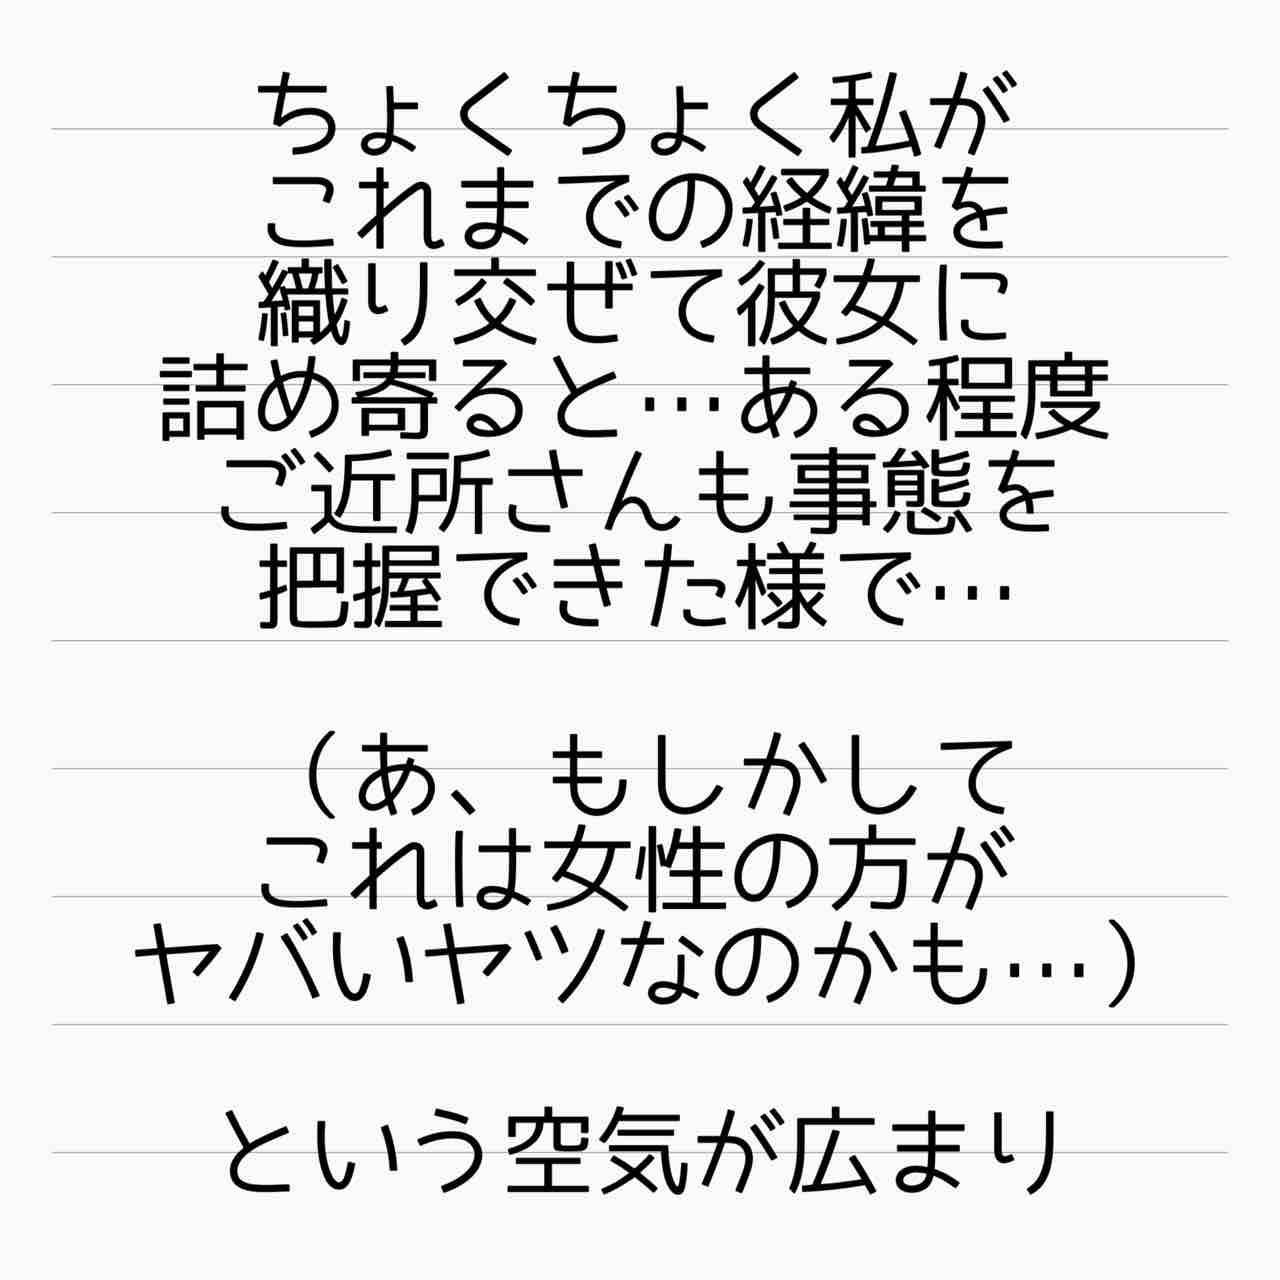 ちょくちょく私が
これまでの経緯を
織り交ぜて彼女に
詰め寄ると…ある程度
ご近所さんも事態を
把握できた様で…
（あ、もしかして
これは女性の方が
ヤバいヤツなのかも…）
という空気が広まり